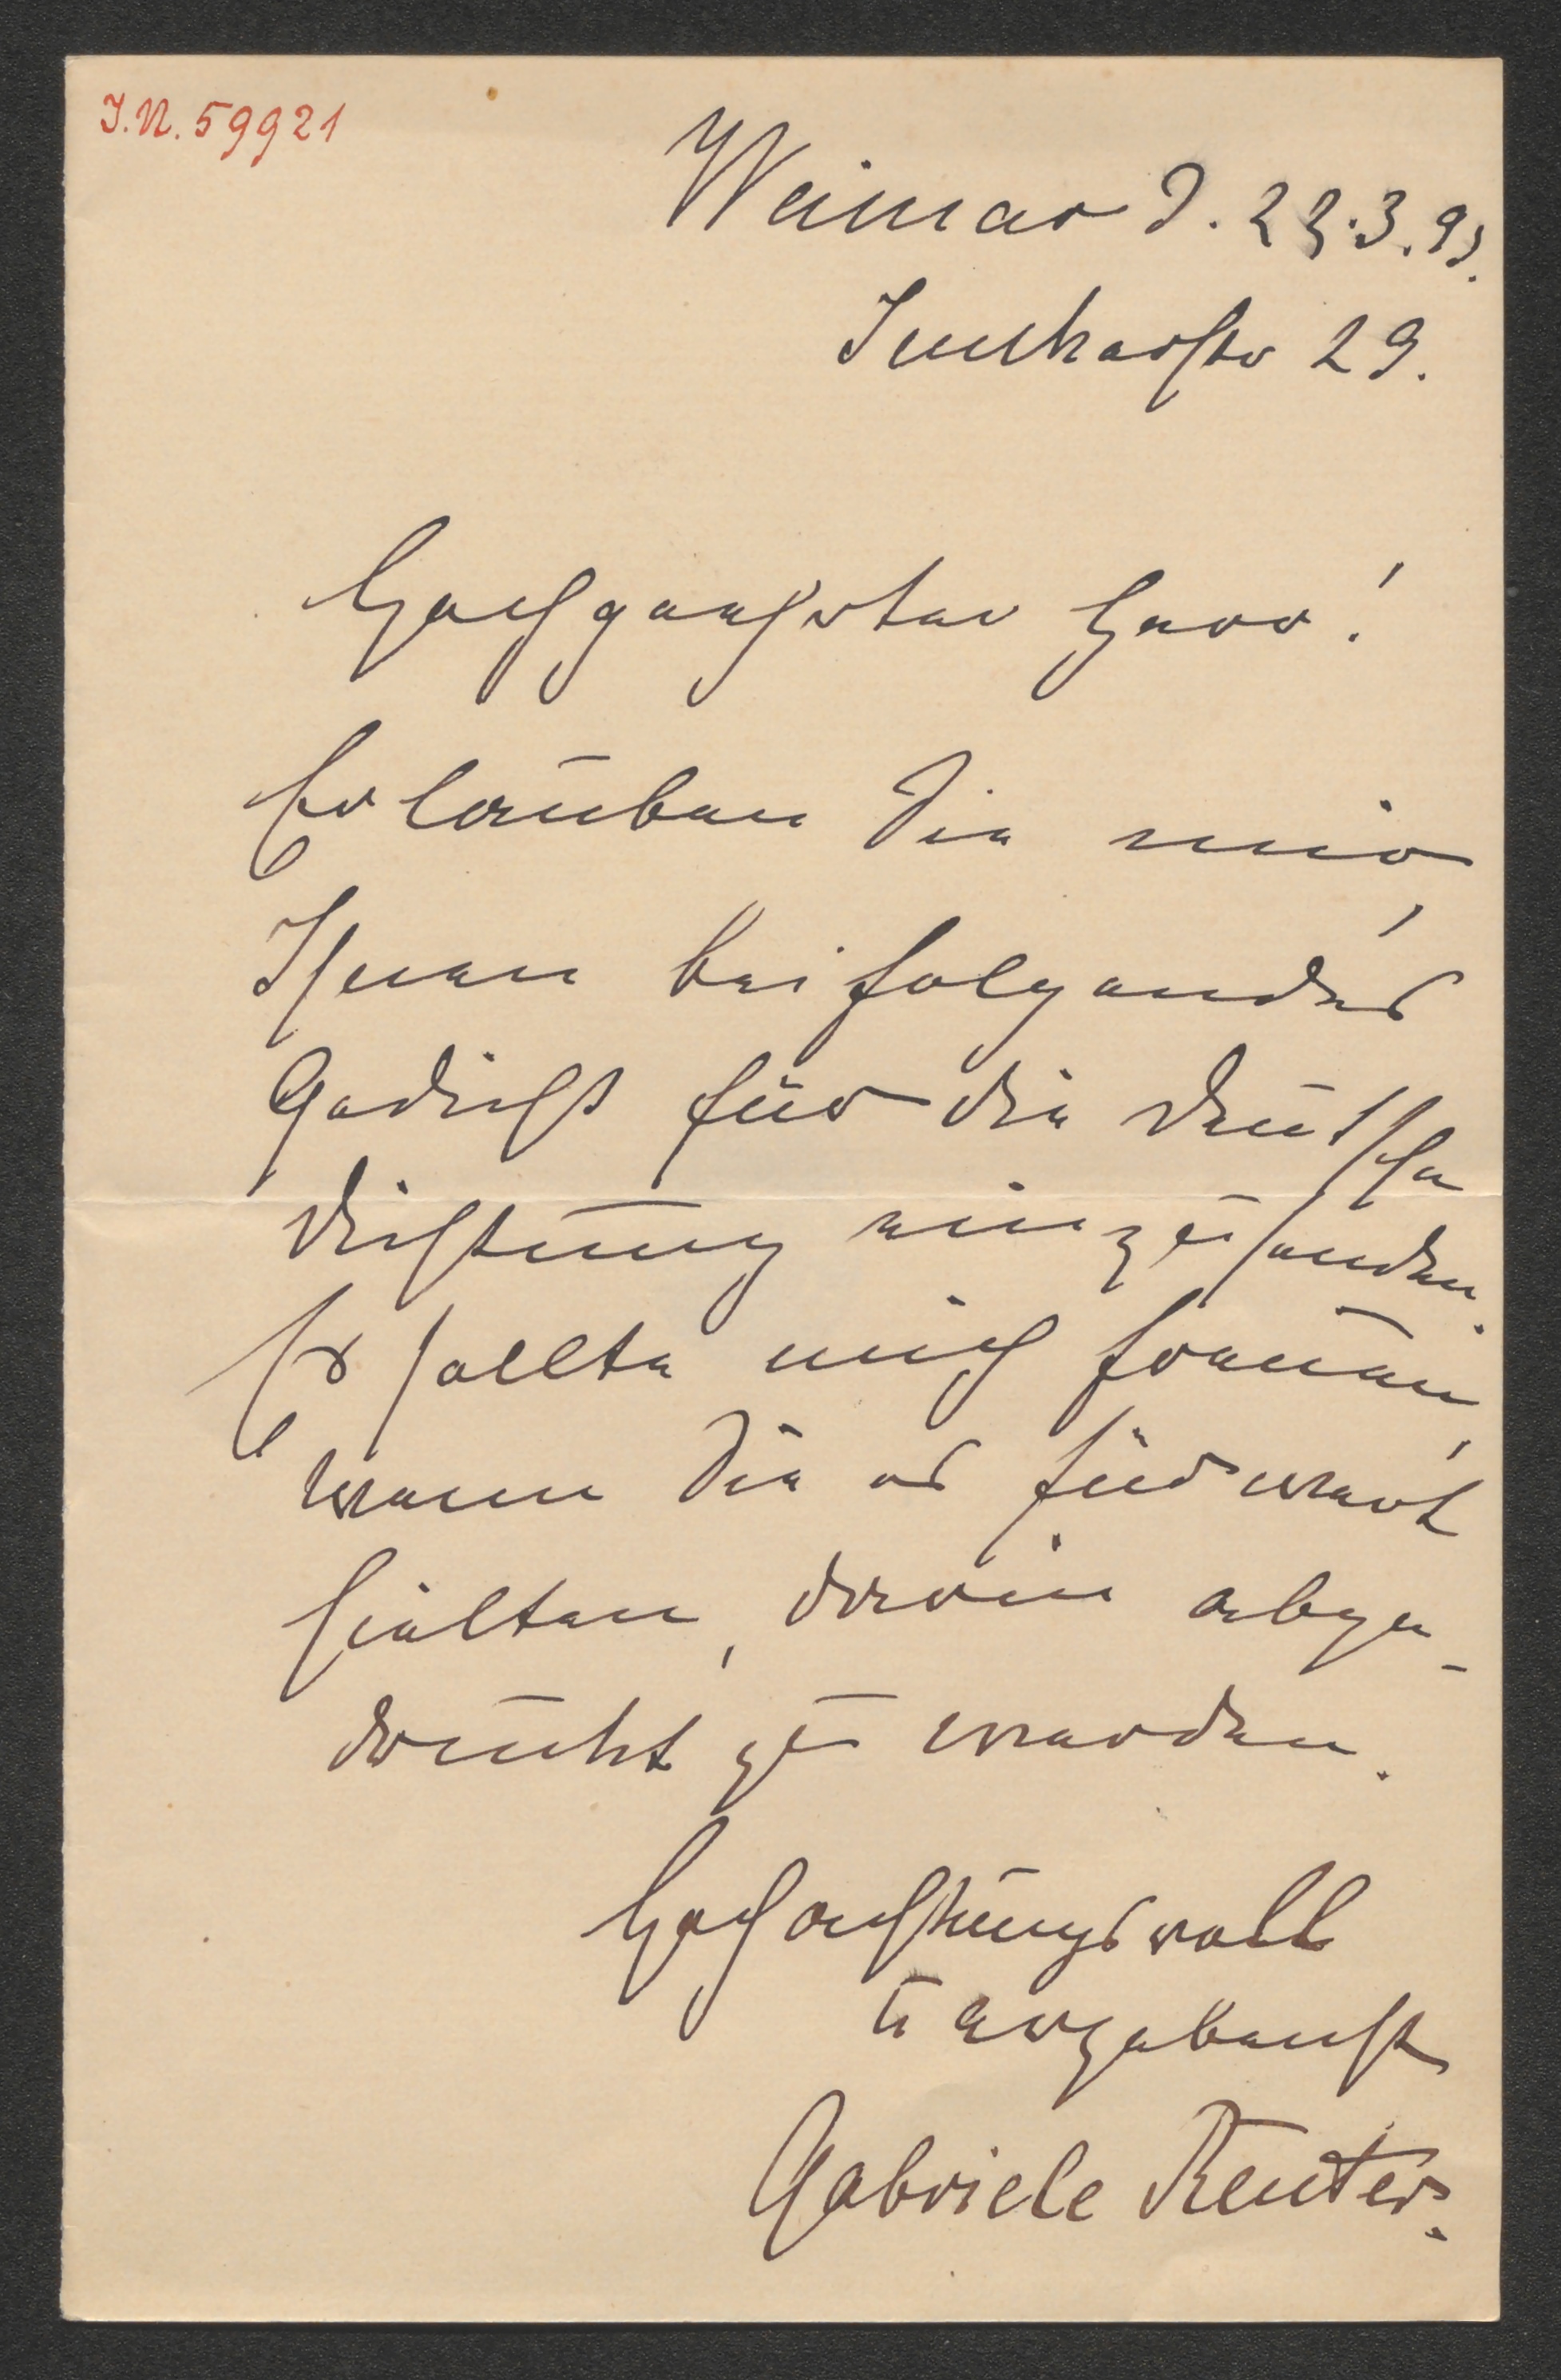 I.N. 59921
Weimar d. 22.3.93.
Junkerstr 29.
Hochgeehrter Herr!
Erlauben Sie mir,
Ihnen beifolgendes
Gedicht für die deutsche
Dichtung einzusenden.
Es sollte mich freuen,
wenn Sie es für wert
hielten, darin abge-
druckt zu werden.
Hochachtungsvoll
u ergebenst
Gabriele Reuter.